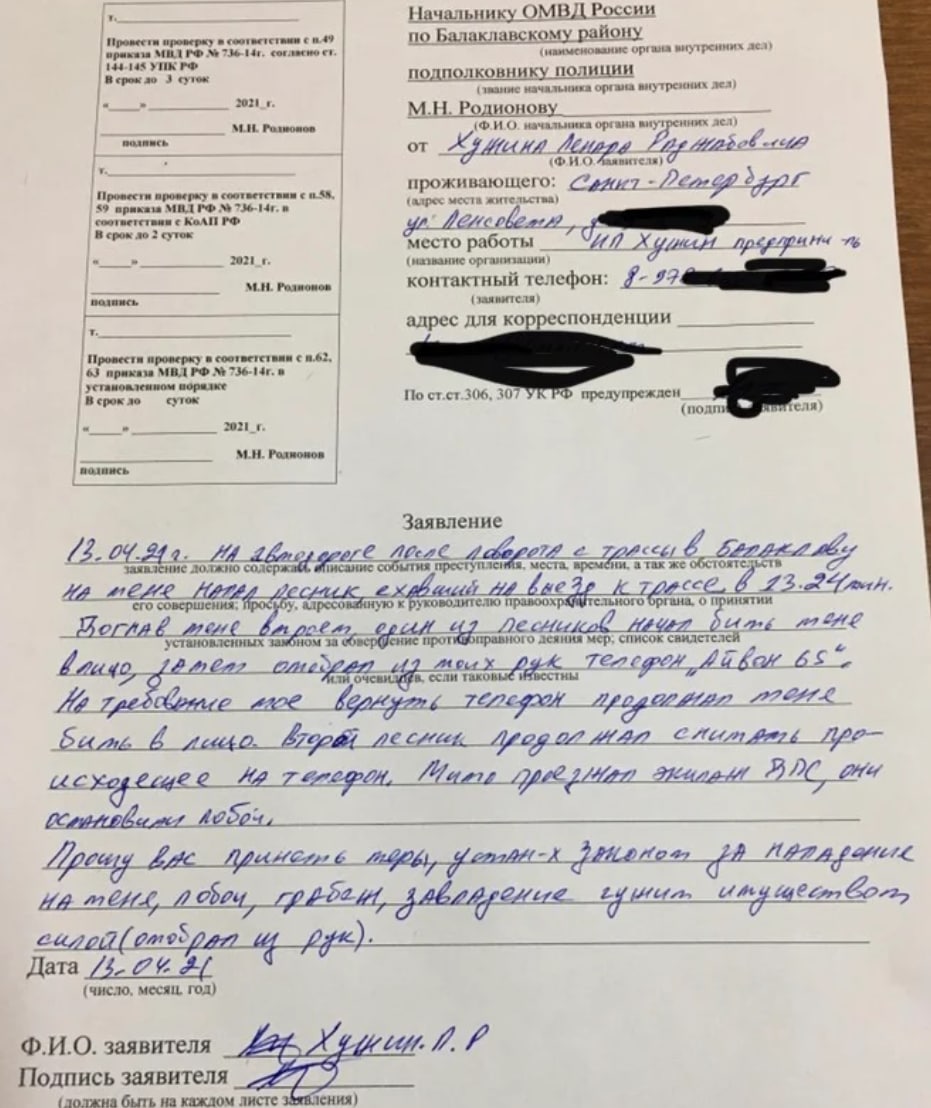 т.
Провести проверку в соответствии с п.49
приказа МВД РФ № 736-14г. согласно ст.
144-145 УПК РФ
В срок до 3 суток
«____» ____________ 2021_г.
М.Н. Родионов
подпись
т.
Провести проверку в соответствии с п.58,
59 приказа МВД РФ № 736-14г. в
соответствии с КоАП РФ
В срок до 2 суток
«____» ____________ 2021_г.
М.Н. Родионов
подпись
т.
Провести проверку в соответствии с п.62,
63 приказа МВД РФ № 736-14г. в
установленном порядке
В срок до суток
«____» ____________ 2021_г.
М.Н. Родионов
подпись
Начальнику ОМВД России
по Балаклавскому району
(наименование органа внутренних дел)
подполковнику полиции
(звание начальника органа внутренних дел)
М.Н. Родионову
(Ф.И.О. начальника органа внутренних дел)
от Хужина Ленара Раджабовича
(Ф.И.О. заявителя)
проживающего: Санкт-Петербург
(адрес места жительства)
ул. Ленсовета, д
место работы ИП Хужин предприни-ль
(название организации)
контактный телефон: 8-978
(заявителя)
адрес для корреспонденции
По ст.ст.306, 307 УК РФ предупрежден
(подпи заявителя)
Заявление
13.04.21г. на автодороге после поворота с трассы в Балаклаву
заявление должно содержать описание события преступления, места, времени, а так же обстоятельств
на меня напал лесник ехавший на выезд к трассе, в 13.24 мин.
его совершения; просьбу, адресованную к руководителю правоохранительного органа, о принятии
Догнав меня втроем один из лесников начал бить меня
установленных законом за совершение противоправного деяния мер; список свидетелей
в лицо, затем отобрал из моих рук телефон „Айвон 6S“.
или очевидцев, если таковые известны
На требование мое вернуть телефон продолжал меня
бить в лицо. Второй лесник продолжал снимать про-
исходещее на телефон. Мимо проезжал экипаж ДПС, они
остановили побои.
Прошу вас принять меры, устан-х законом за нападение
на меня, побои, грабеж, завладение чужим имуществом
силой (отобрал из рук).
Дата 13.04.21
(число, месяц, год)
Ф.И.О. заявителя Хужин. Л. Р
Подпись заявителя
(должна быть на каждом листе заявления)